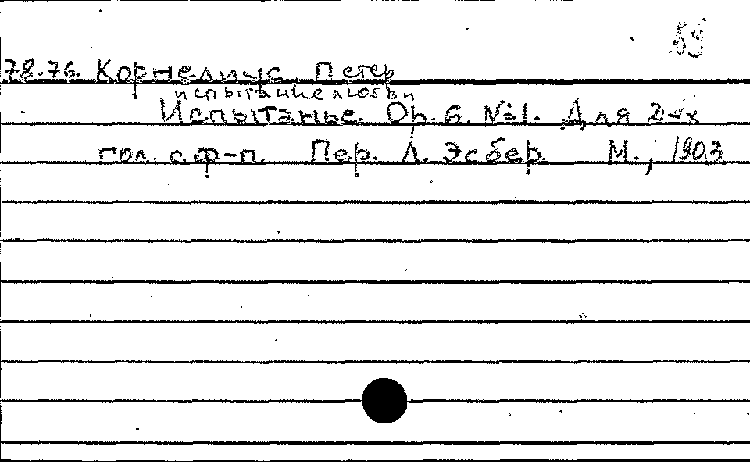 59
78.76. Корнелиус, Петер
испытание любви
Испытанье. Op. 6. №1. Для 2-х
гол. с ф-п. Пер. Л. Эсбер. М., 1903